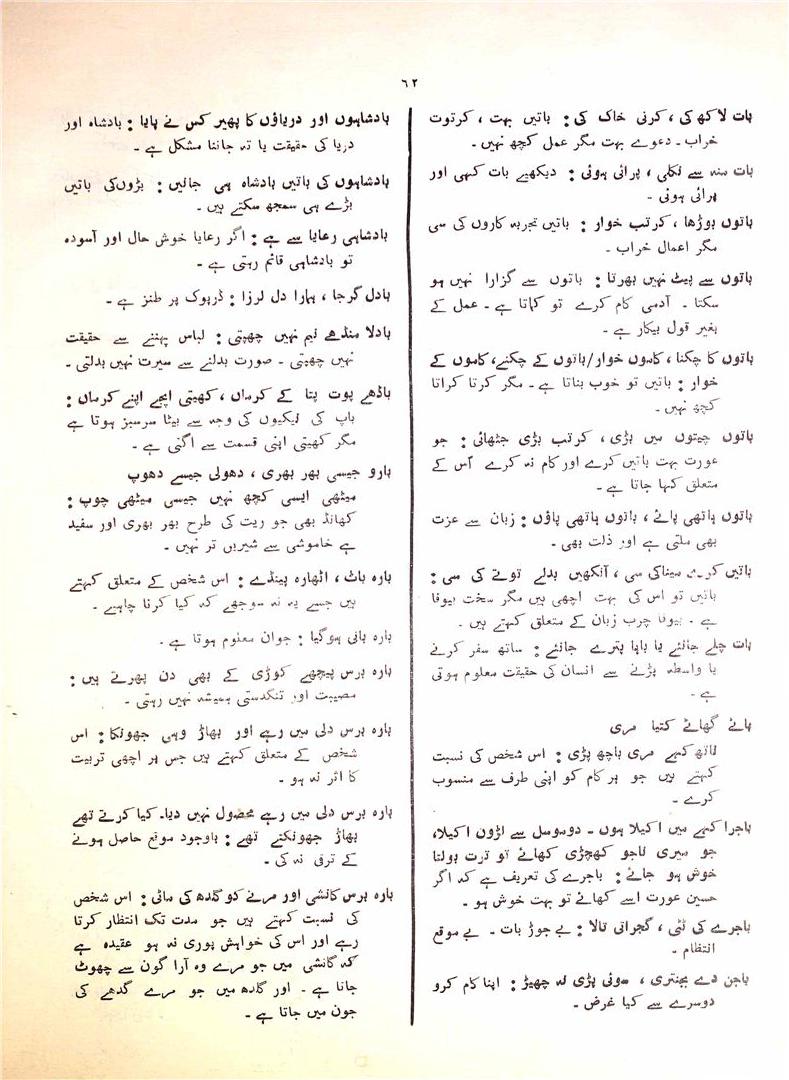 ٦٢
بات لاکھ کی ، کرنی خاک کی : باتیں بہت ، کرتوت
خراب ۔ دعوے بہت مگر عمل کچھ نہیں ۔
بات منہ سے نکلی ، پرائی ہوئی : دیکھیے بات کہی اور
پرائی ہوئی ۔
باتوں بوڑھا ، کرتب خوار : باتیں تجربہ کاروں کی سی
مگر اعمال خراب ۔
باتوں سے پیٹ نہیں بھرتا : باتوں سے گزارا نہیں ہو
سکتا ۔ آدمی کام کرے تو کماتا ہے ۔ عمل کے
بغیر قول بیکار ہے ۔
باتوں کا چکنا ، کاموں خوار/باتوں کے چکنے، کاموں کے
خوار : باتیں تو خوب بناتا ہے ۔ مگر کرتا کراتا
کچھ نہیں ۔
باتوں چیتوں میں بڑی ، کرتب بڑی جٹھانی : جو
عورت بہت باتیں کرے اور کام نہ کرے اس کے
متعلق کہا جاتا ہے ۔
باتوں ہاتھی پائے ، باتوں ہاتھی پاؤں : زبان سے عزت
بھی ملتی ہے اور ذلت بھی ۔
باتیں کرے میناکی سی ، آنکھیں بدلے توتے کی سی :
باتیں تو اس کی بہت اچھی ہیں مگر سخت بیوفا
ہے ۔ بیوفا چرب زبان کے متعلق کہتے ہیں ۔
بات چلے جانئے یا باہا پترے جانئے : ساتھ سفر کرنے
یا واسطہ پڑنے سے انسان کی حقیقت معلوم ہوتی
ہے ۔
باٹے گھاٹے کتیا مری
ناتھ کہے مری باچھ پڑی : اس شخص کی نسبت
کہتے ہیں جو ہر کام کو اپنی طرف سے منسوب
کرے ۔
باجرا کہے میں اکیلا ہوں ۔ دوموسل سے لڑوں اکیلا،
جو میری تاجو کھچڑی کھائے تو ترت بولتا
خوش ہو جائے : باجرے کی تعریف ہے کہ اگر
حسین عورت اسے کھائے تو بہت خوش ہو ۔
باجرے کی ٹٹی ، گجراتی تالا : بے جوڑ بات ۔ بے موقع
انتظام ۔
باجن دے بجنتری ، سوئی پڑی نہ چھیڑ : اپنا کام کرو
دوسرے سے کیا غرض ۔
بادشاہوں اور دریاؤں کا پھیر کس نے پایا : بادشاہ اور
دریا کی حقیقت یا تہ جاننا مشکل ہے ۔
بادشاہوں کی باتیں بادشاہ ہی جانیں : بڑوں کی باتیں
بڑے ہی سمجھ سکتے ہیں ۔
بادشاہی رعایا سے ہے : اگر رعایا خوش حال اور آسودہ
تو بادشاہی قائم رہتی ہے ۔
بادل گرجا ، ہمارا دل لرزا : ڈرپوک پر طنز ہے ۔
بادلا منڈھے نیم نہیں چھپتی : لباس پہننے سے حقیقت
نہیں چھپتی ۔ صورت بدلنے سے سیرت نہیں بدلتی ۔
باڈھے پوت پتا کے کرماں ، کھیتی اپجے اپنے کرماں :
باپ کی نیکیوں کی وجہ سے بیٹا سرسبز ہوتا ہے
مگر کھیتی اپنی قسمت سے اگتی ہے ۔
بارو جیسی بھر بھری ، دھولی جیسے دھوپ
میٹھی ایسی کچھ نہیں جیسی میٹھی چوپ :
کھانڈ بھی جو ریت کی طرح بھر بھری اور سفید
ہے خاموشی سے شیریں تر نہیں ۔
بارہ باٹ ، اٹھارہ پینڈے : اس شخص کے متعلق کہتے
ہیں جسے یہ نہ سوجھے کہ کیا کرنا چاہیے ۔
بارہ بانی ہوگیا : جوان معلوم ہوتا ہے ۔
بارہ برس پیچھے کوڑی کے بھی دن پھرتے ہیں :
مصیبت اور تنگدستی ہمیشہ نہیں رہتی ۔
بارہ برس دلی میں رہے اور بھاڑ وہی جھونکا : اس
شخص کے متعلق کہتے ہیں جس پر اچھی تربیت
کا اثر نہ ہو ۔
بارہ برس دلی میں رہے محصول نہیں دیا۔ کیا کرتے تھے
بھاڑ جھونکتے تھے : باوجود موقع حاصل ہونے
کے ترقی نہ کی ۔
بارہ برس کانشی اور مرنے کو گدھ کی مائی : اس شخص
کی نسبت کہتے ہیں جو مدت تک انتظار کرتا
رہے اور اس کی خواہش پوری نہ ہو عقیدہ ہے
کہ کانشی میں جو مرے وہ آرا گون سے چھوٹ
جاتا ہے ۔ اور گدھ میں جو مرے گدھے کی
جون میں جاتا ہے ۔